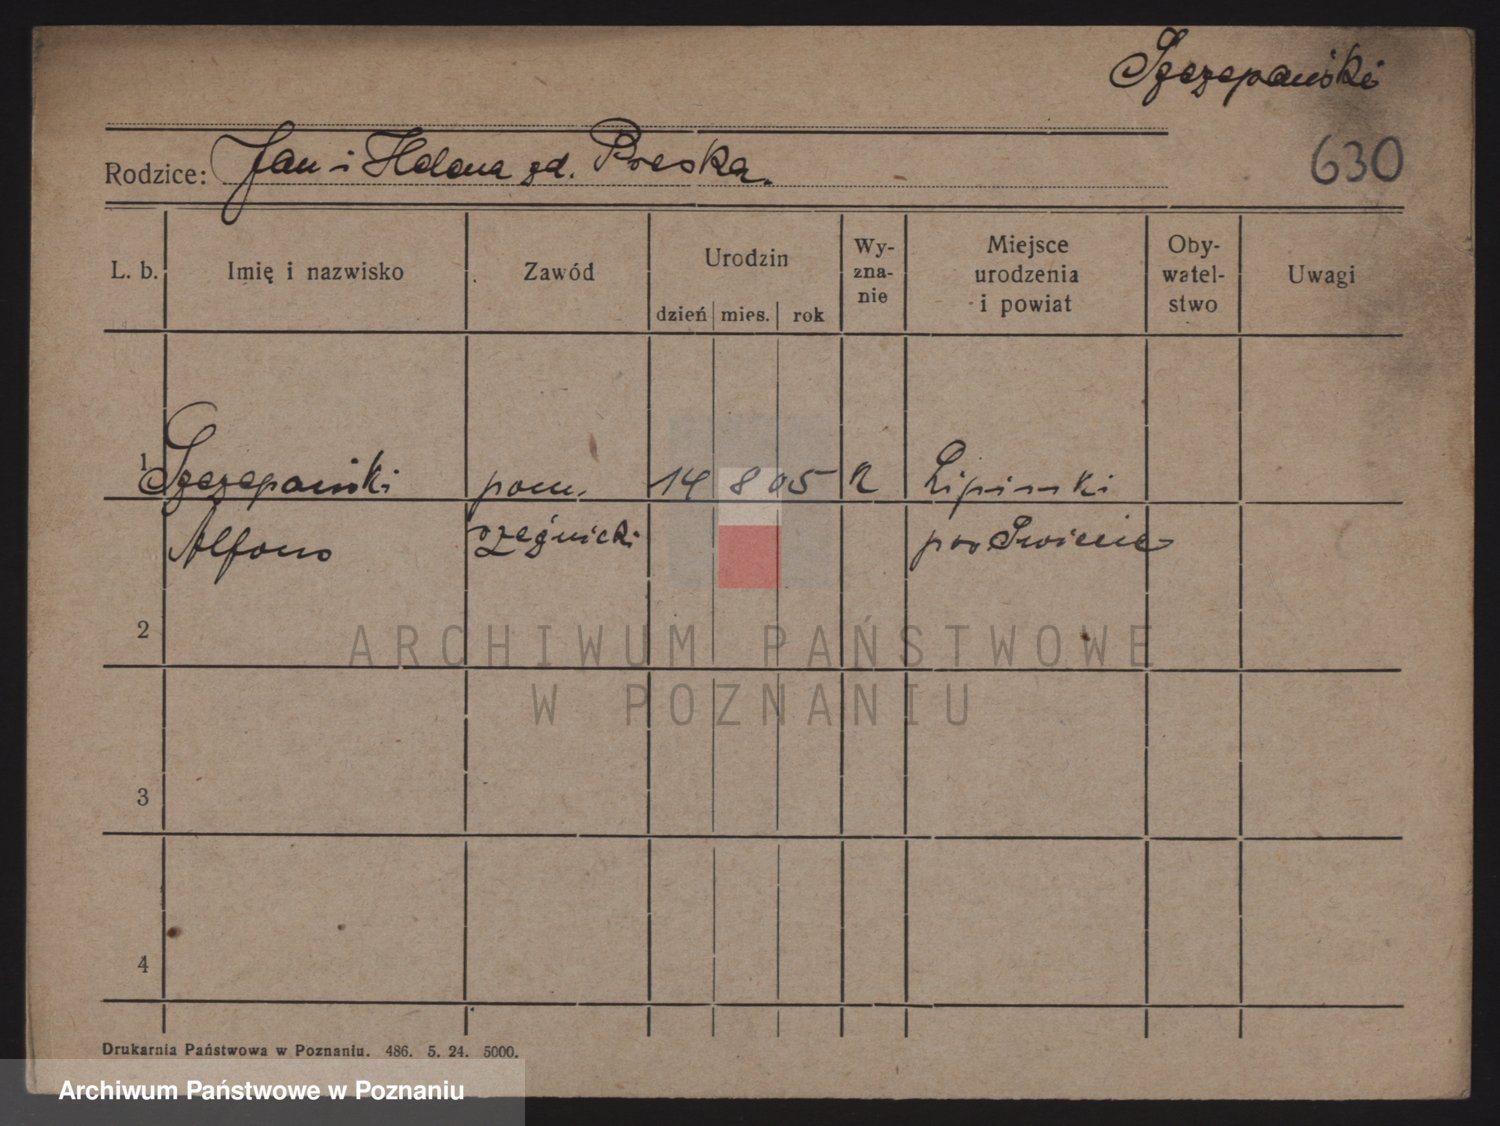 Szczepański
Rodzice: Jan i Helena zd. Preska.
630
L. b. Imię i nazwisko Zawód Urodzin dzień mies. rok Wy-zna-nie Miejsce urodzenia i powiat Oby-watel-stwo Uwagi
1 Szczepański pom. 14 8 05 k Lipinki
Alfons rzeźnicki pow Świecie
2
3
4
ARCHIWUM PAŃSTWOWE
W POZNANIU
Drukarnia Państwowa w Poznaniu. 486. 5. 24. 5000.
Archiwum Państwowe w Poznaniu